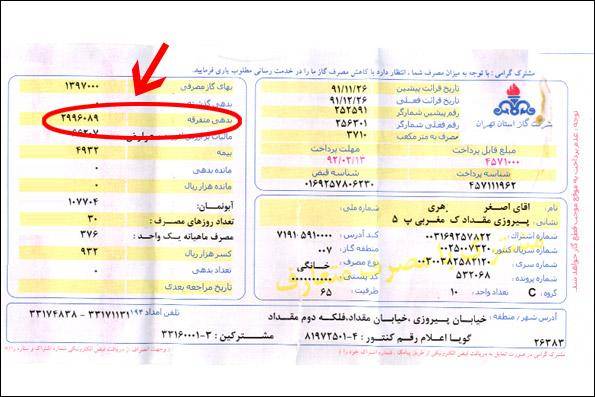 مشترک گرامی : با توجه به میزان مصرف شما، انتظار دارد با کاهش مصرف گاز ما را در خدمت رسانی مطلوب یاری فرمایید.
شرکت گاز استان تهران
تاریخ قرائت پیشین ۹۱/۱۱/۲۶
تاریخ قرائت فعلی ۹۱/۱۲/۲۶
رقم پیشین شمارگر ۲۵۲۵۹۱
رقم فعلی شمارگر ۲۵۶۳۰۱
مصرف به متر مکعب ۳۷۱۰
مبلغ قابل پرداخت ۴۵۷۱۰۰۰
مهلت پرداخت ۹۲/۰۲/۱۳
شناسه قبض ۴۵۷۱۱۱۹۶۲
شناسه پرداخت
بهای گاز مصرفی ۱۳۹۷۰۰۰
بدهی گذشته ۰
بدهی متفرقه ۲۹۹۶۰۸۹
بیمه ۴۹۳۲
مانده بدهی ۰
مانده هزار ریال ۰
آبونمان: ۱۰۷۷۰۴
تعداد روزهای مصرف : ۳۰
مصرف ماهیانه یک واحد : ۳۷۶
کسر هزار ریال ۹۳۲
تعداد بدهی ۰
تاریخ مراجعه بعدی
نام: اقای اصغر هری
شماره ملی:
نشانی: پیروزی مقداد ک مغربی پ ۵
شماره اشتراک: ۰۰۳۱۶۹۲۵۷۸۲۲
کد آدرس: ۷۱۹۱ ۵۹۱۰۰۰
شماره سریال کنتور: ۰۲۵۰۰۷۳۲۰
منطقه گاز: ۰۰۷
شماره سری: ۰۰۳۰۰۳۸۲۵۸۲۱۲۰
نوع مصرف: خانگی
شماره پرونده: ۵۳۲۰۶۸
کد پستی: ۰۰۰۰۰۰۰۰۰۰
گروه: C
تعداد واحد: ۱۰
ظرفیت: ۶۵
آدرس شهر / منطقه: خیابان پیروزی ،خیابان مقداد،فلکه دوم مقداد
تلفن امداد ۱۹۴ ۳۳۱۷۱۱۳۱ - ۳۳۱۷۴۸۳۸
۲۶۳۸۳ گویا اعلام رقم کنتور: ۴-۸۱۹۷۲۵۰۱ مشترکین : ۳-۳۳۱۶۰۰۰۱